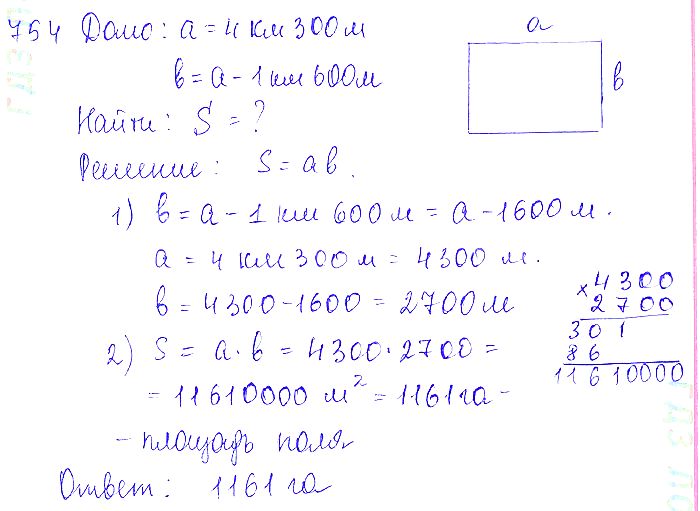 754 Дано: a = 4 км 300 м
a
b = a - 1 км 600 м
b
Найти: S = ?
Решение: S = ab.
1) b = a - 1 км 600 м = a - 1600 м.
a = 4 км 300 м = 4300 м.
b = 4300 - 1600 = 2700 м
× 4300
2700
301
86
11610000
2) S = a · b = 4300 · 2700 =
= 11610000 м² = 1161 га -
- площадь поля
Ответ: 1161 га
ГДЗ
ГДЗ ПО